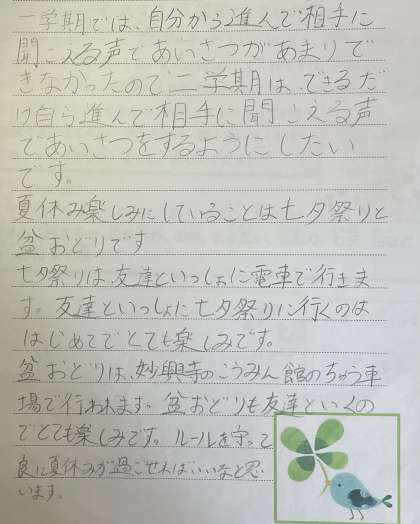 一学期では、自分から進んで相手に
聞こえる声であいさつがあまりで
きなかったので二学期は、できるだ
け自ら進んで相手に聞こえる声
であいさつをするようにしたい
です。
夏休み楽しみにしていることは七夕祭りと
盆おどりです
七夕祭りは、友達といっしょに電車で行きま
す。友達といっしょに七夕祭りに行くのは
はじめてでとても楽しみです。
盆おどりは、妙興寺のこうみん館のちゅう車
場で行われます。盆おどりも友達といくの
でとても楽しみです。ルールを守って
良い夏休みが過ごせればいいなと思
います。